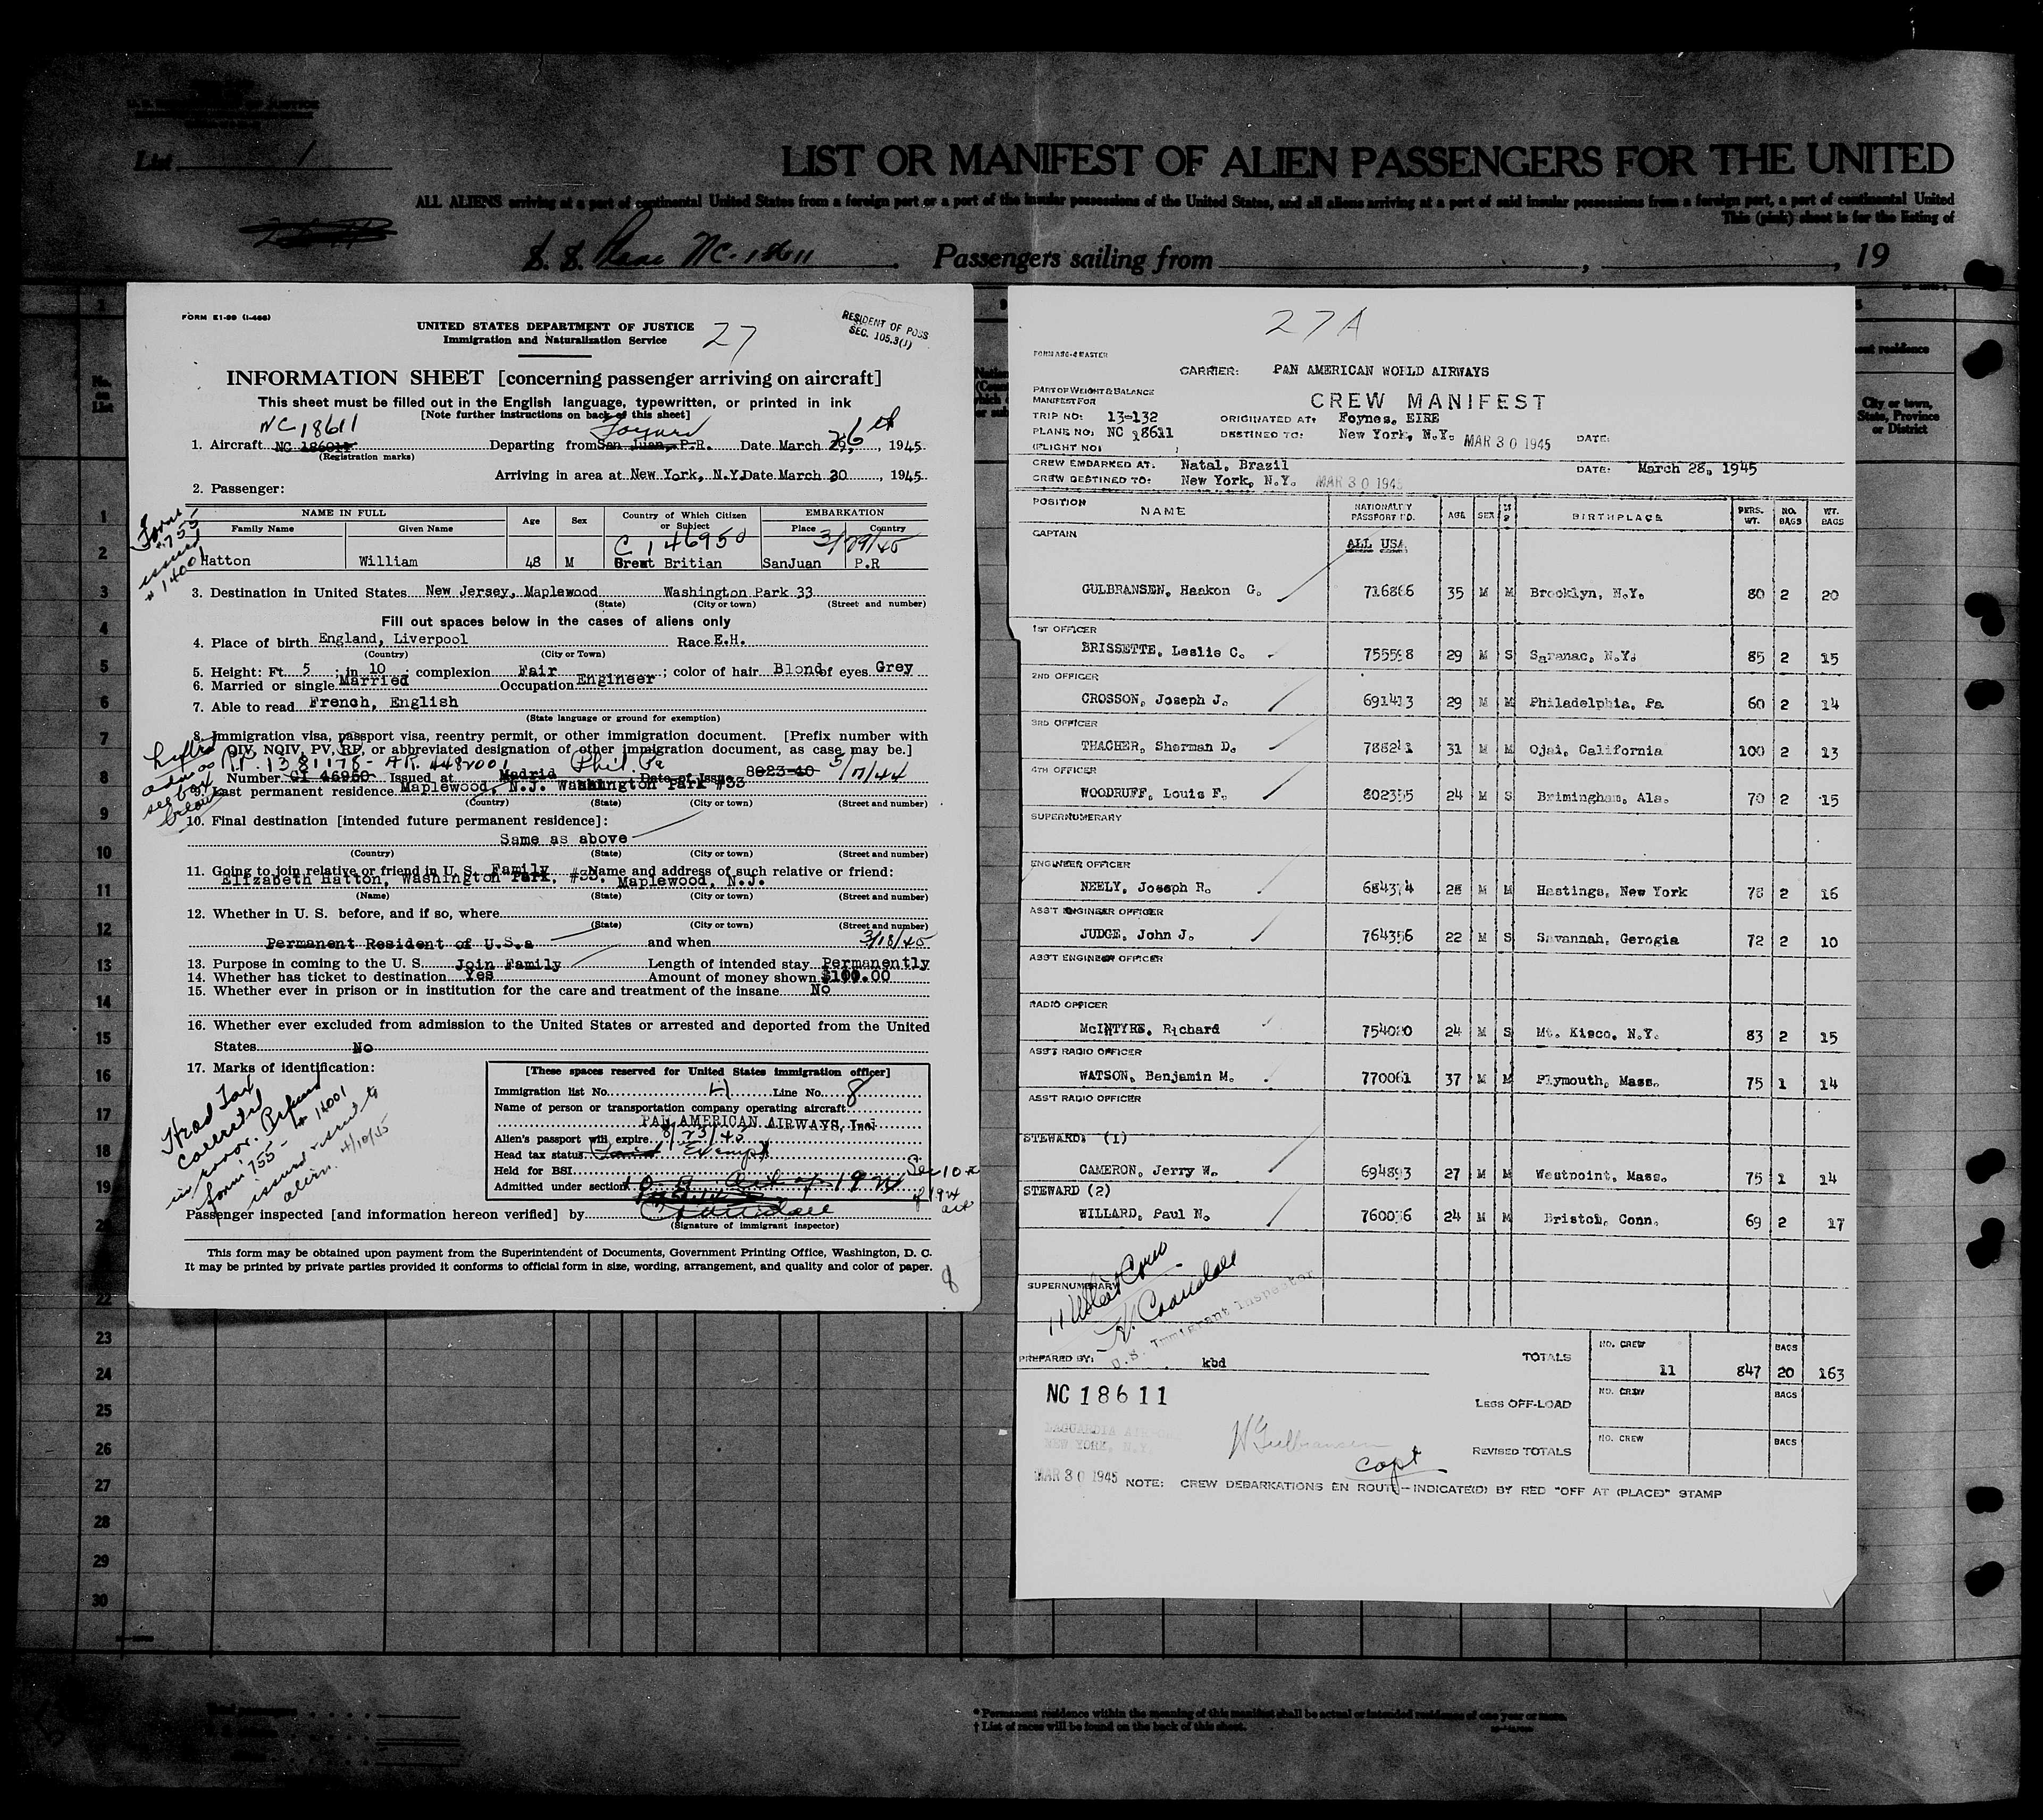 List 1
LIST OR MANIFEST OF ALIEN PASSENGERS FOR THE UNITED
ALL ALIENS arriving at a port of continental United States from a foreign port or a port of the insular possessions of the United States, and all aliens arriving at a port of said insular possessions from a foreign port, a port of continental United
This (pink) sheet is for the listing of
S. S. NC-18611 Passengers sailing from , , 19
FORM E1-99 (I-466)
UNITED STATES DEPARTMENT OF JUSTICE
Immigration and Naturalization Service
27
RESIDENT OF POSS
SEC. 105.3(J)
INFORMATION SHEET [concerning passenger arriving on aircraft]
This sheet must be filled out in the English language, typewritten, or printed in ink
[Note further instructions on back of this sheet]
NC 18611 Foynes 26th
1. Aircraft NC 18601 Departing from San Juan, P.R. Date March , 1945
(Registration marks)
Arriving in area at New York, N.Y. Date March 30 , 1945
2. Passenger:
NAME IN FULL Age Sex Country of Which Citizen or Subject EMBARKATION
Family Name Given Name Place Country
C 146950 3/29/45
Hatton William 48 M Great Britian SanJuan P.R
Form 755 issued # 14001
3. Destination in United States New Jersey, Maplewood Washington Park 33
(State) (City or town) (Street and number)
Fill out spaces below in the cases of aliens only
4. Place of birth England, Liverpool Race E.H.
(Country) (City or Town)
5. Height: Ft. 5 ; in 10 ; complexion Fair ; color of hair Blond of eyes Grey
6. Married or single Married Occupation Engineer
7. Able to read French, English
(State language or ground for exemption)
8. Immigration visa, passport visa, reentry permit, or other immigration document. [Prefix number with
QIV, NQIV, PV, RP, or abbreviated designation of other immigration document, as case may be.]
R.P. 1381178 - AR. 4482001 Phil. Pa 3/7/44
Number CI 46950 Issued at Madrid Date of Issue 8-23-40
9. Last permanent residence Maplewood, N.J. Washington Park #33
(Country) (State) (City or town) (Street and number)
see box below
10. Final destination [intended future permanent residence]:
Same as above
(Country) (State) (City or town) (Street and number)
11. Going to join relative or friend in U.S. Family Name and address of such relative or friend:
Elizabeth Hatton, Washington Park, #33. Maplewood, N.J.
(Name) (State) (City or town) (Street and number)
12. Whether in U. S. before, and if so, where
(State) (City or town) (Street and number)
Permanent Resident of U.S.a and when 3/18/45
13. Purpose in coming to the U. S. Join Family Length of intended stay Permanently
14. Whether has ticket to destination Yes Amount of money shown $100.00
15. Whether ever in prison or in institution for the care and treatment of the insane No
16. Whether ever excluded from admission to the United States or arrested and deported from the United
States No
17. Marks of identification:
Head Tax
collected
in error. Refund
form 755 - # 14001
issued & sent to
alien. 4/10/45
[These spaces reserved for United States immigration officer]
Immigration list No. H Line No. 8
Name of person or transportation company operating aircraft
PAN AMERICAN AIRWAYS, Inc.
Alien's passport will expire 8/23/45
Head tax status Exempt
Held for BSI
Admitted under section Act of 1924
Sec 10 a
of 1924
act
Passenger inspected [and information hereon verified] by
(Signature of immigrant inspector)
This form may be obtained upon payment from the Superintendent of Documents, Government Printing Office, Washington, D. C.
It may be printed by private parties provided it conforms to official form in size, wording, arrangement, and quality and color of paper.
8
27A
CARRIER: PAN AMERICAN WORLD AIRWAYS
PART OF WEIGHT & BALANCE
MANIFEST FOR
CREW MANIFEST
TRIP NO: 13-132 ORIGINATED AT: Foynes, EIRE
PLANE NO: NC 18611 DESTINED TO: New York, N.Y. MAR 30 1945 DATE:
(FLIGHT NO)
CREW EMBARKED AT: Natal, Brazil DATE: March 28, 1945
CREW DESTINED TO: New York, N.Y. MAR 30 1945
POSITION NAME NATIONALITY PASSPORT NO. AGE SEX BIRTHPLACE PERS. WT. NO. BAGS WT. BAGS
CAPTAIN ALL USA
GULBRANSEN, Haakon G. 716866 35 M M Brooklyn, N.Y. 80 2 20
1ST OFFICER
BRISSETTE, Leslie C. 755598 29 M S Saranac, N.Y. 85 2 15
2ND OFFICER
CROSSON, Joseph J. 691413 29 M M Philadelphia, Pa 60 2 14
3RD OFFICER
THACHER, Sherman D. 788241 31 M M Ojai, California 100 2 13
4TH OFFICER
WOODRUFF, Louis F. 802355 24 M S Brimingham, Ala. 70 2 15
SUPERNUMERARY
ENGINEER OFFICER
NEELY, Joseph R. 684374 28 M M Hastings, New York 78 2 16
ASS'T ENGINEER OFFICER
JUDGE, John J. 764356 22 M S Savannah, Gerogia 72 2 10
ASS'T ENGINEER OFFICER
RADIO OFFICER
McINTYRE, Richard 754080 24 M S Mt. Kisco, N.Y. 83 2 15
ASS'T RADIO OFFICER
WATSON, Benjamin M. 770061 37 M M Plymouth, Mass. 75 1 14
ASS'T RADIO OFFICER
STEWARD: (1)
CAMERON, Jerry W. 694893 27 M M Westpoint, Mass. 75 1 14
STEWARD (2)
WILLARD, Paul N. 760036 24 M M Bristol, Conn. 69 2 17
SUPERNUMERARY
11 USCit Crew
H. Crandall
U.S. Immigrant Inspector
PREPARED BY: kbd
TOTALS NO. CREW 11 847 BAGS 20 163
NC 18611
LESS OFF-LOAD NO. CREW BAGS
LAGUARDIA
NEW YORK, N.Y.
H Gulbransen
Capt
REVISED TOTALS NO. CREW BAGS
MAR 30 1945 NOTE: CREW DEBARKATIONS EN ROUTE -- INDICATE(D) BY RED "OFF AT (PLACE)" STAMP
* Permanent residence within the meaning of this manifest shall be actual or intended residence of one year or more.
† List of races will be found on the back of this sheet.